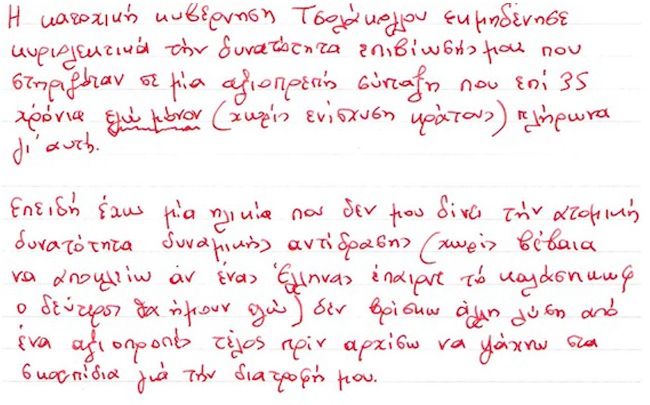 Η κατοχική κυβέρνηση Τσολάκογλου εκμηδένησε
κυριολεκτικά την δυνατότητα επιβίωσής μου που
στηριζόταν σε μία αξιοπρεπή σύνταξη που επί 35
χρόνια εγώ μόνον (χωρίς ενίσχυση κράτους) πλήρωνα
γι' αυτή.
Επειδή έχω μία ηλικία που δεν μου δίνει την ατομική
δυνατότητα δυναμικής αντίδρασης (χωρίς βέβαια
να αποκλείω άν ένας Έλληνας έπαιρνε το καλάσηκωφ
ο δεύτερος θα ήμουν εγώ) δεν βρίσκω άλλη λύση από
ένα αξιοπρεπές τέλος πρίν αρχίσω να ψάχνω στα
σκουπίδια γιά την διατροφή μου.